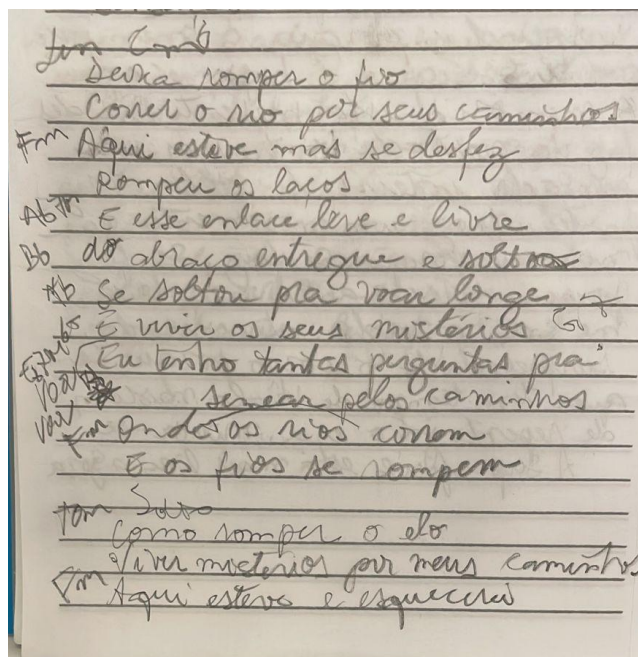 Deixa romper o fio
Correr o rio por seus caminhos
Fm Aqui esteve mas se desfez
Rompeu os laços
Ab 7m E esse enlace leve e livre
Bb do abraço entregue e solto
Ab Se soltou pra voar longe
E viver os seus mistérios G7
Eu tenho tantas perguntas pra
semear pelos caminhos
Fm Onde os rios correm
E os fios se rompem
Como romper o elo
Viver mistérios por meus caminhos
Fm Aqui estevo e esquecerei